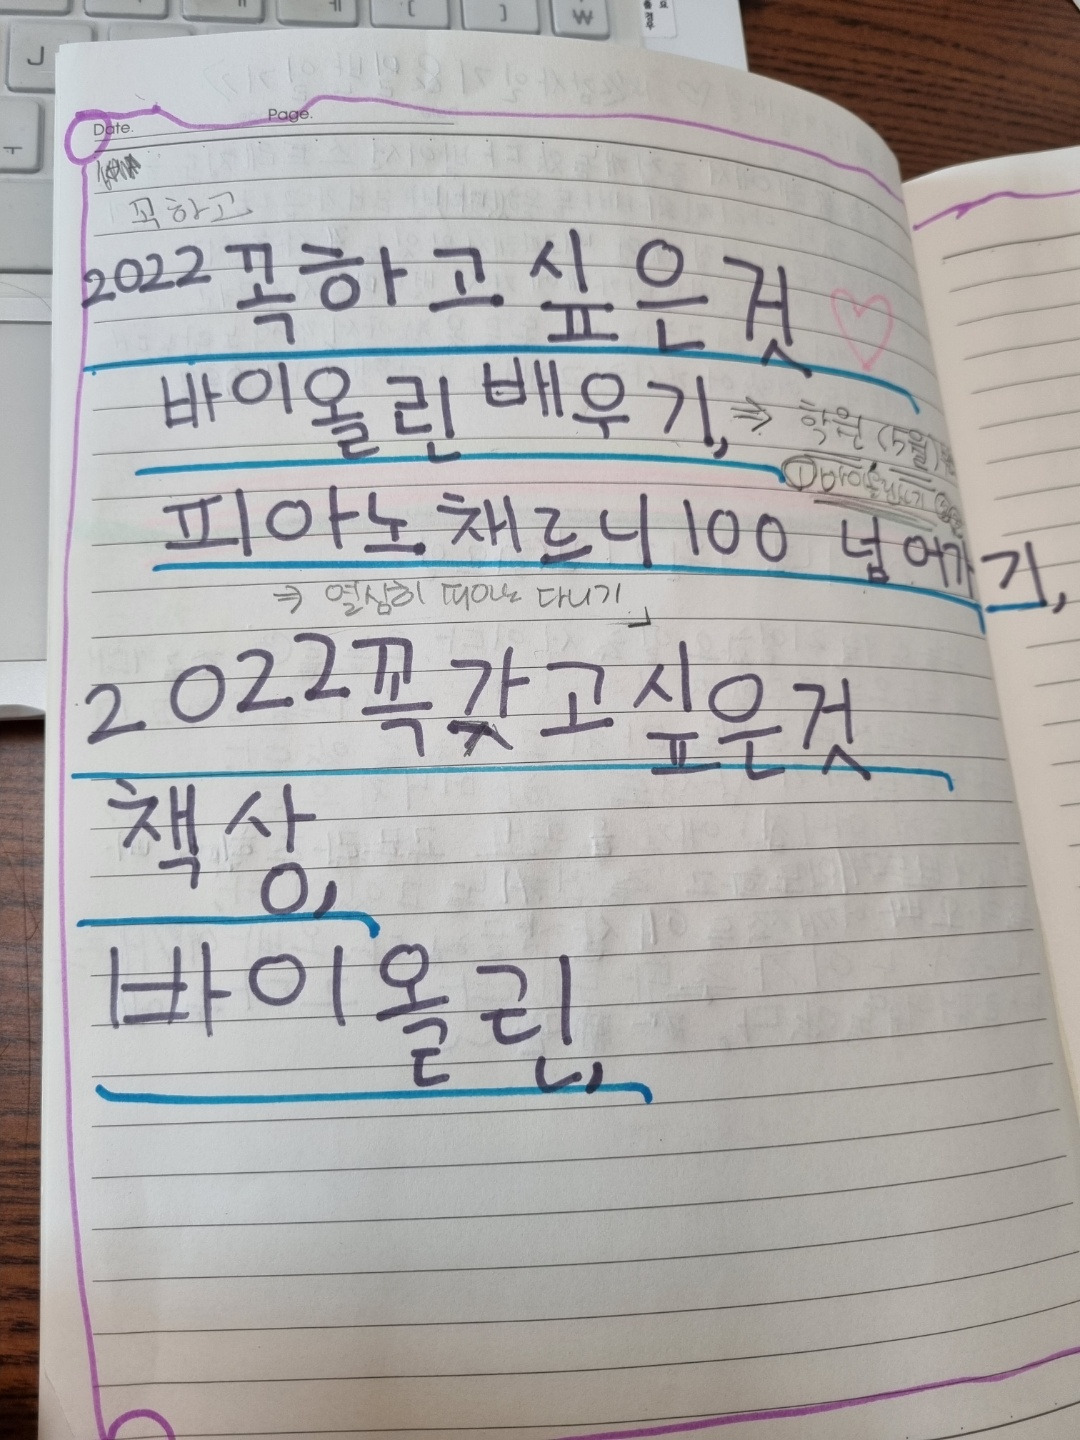 Date.
Page.
꼭하고
2022 꼭하고싶은것
바이올린 배우기, ⇒ 학원 (5월)
피아노 채르니 100 넘어가기,
⇒ 열심히 피아노 다니기
2022 꼭갖고싶은것
책상,
바이올린,